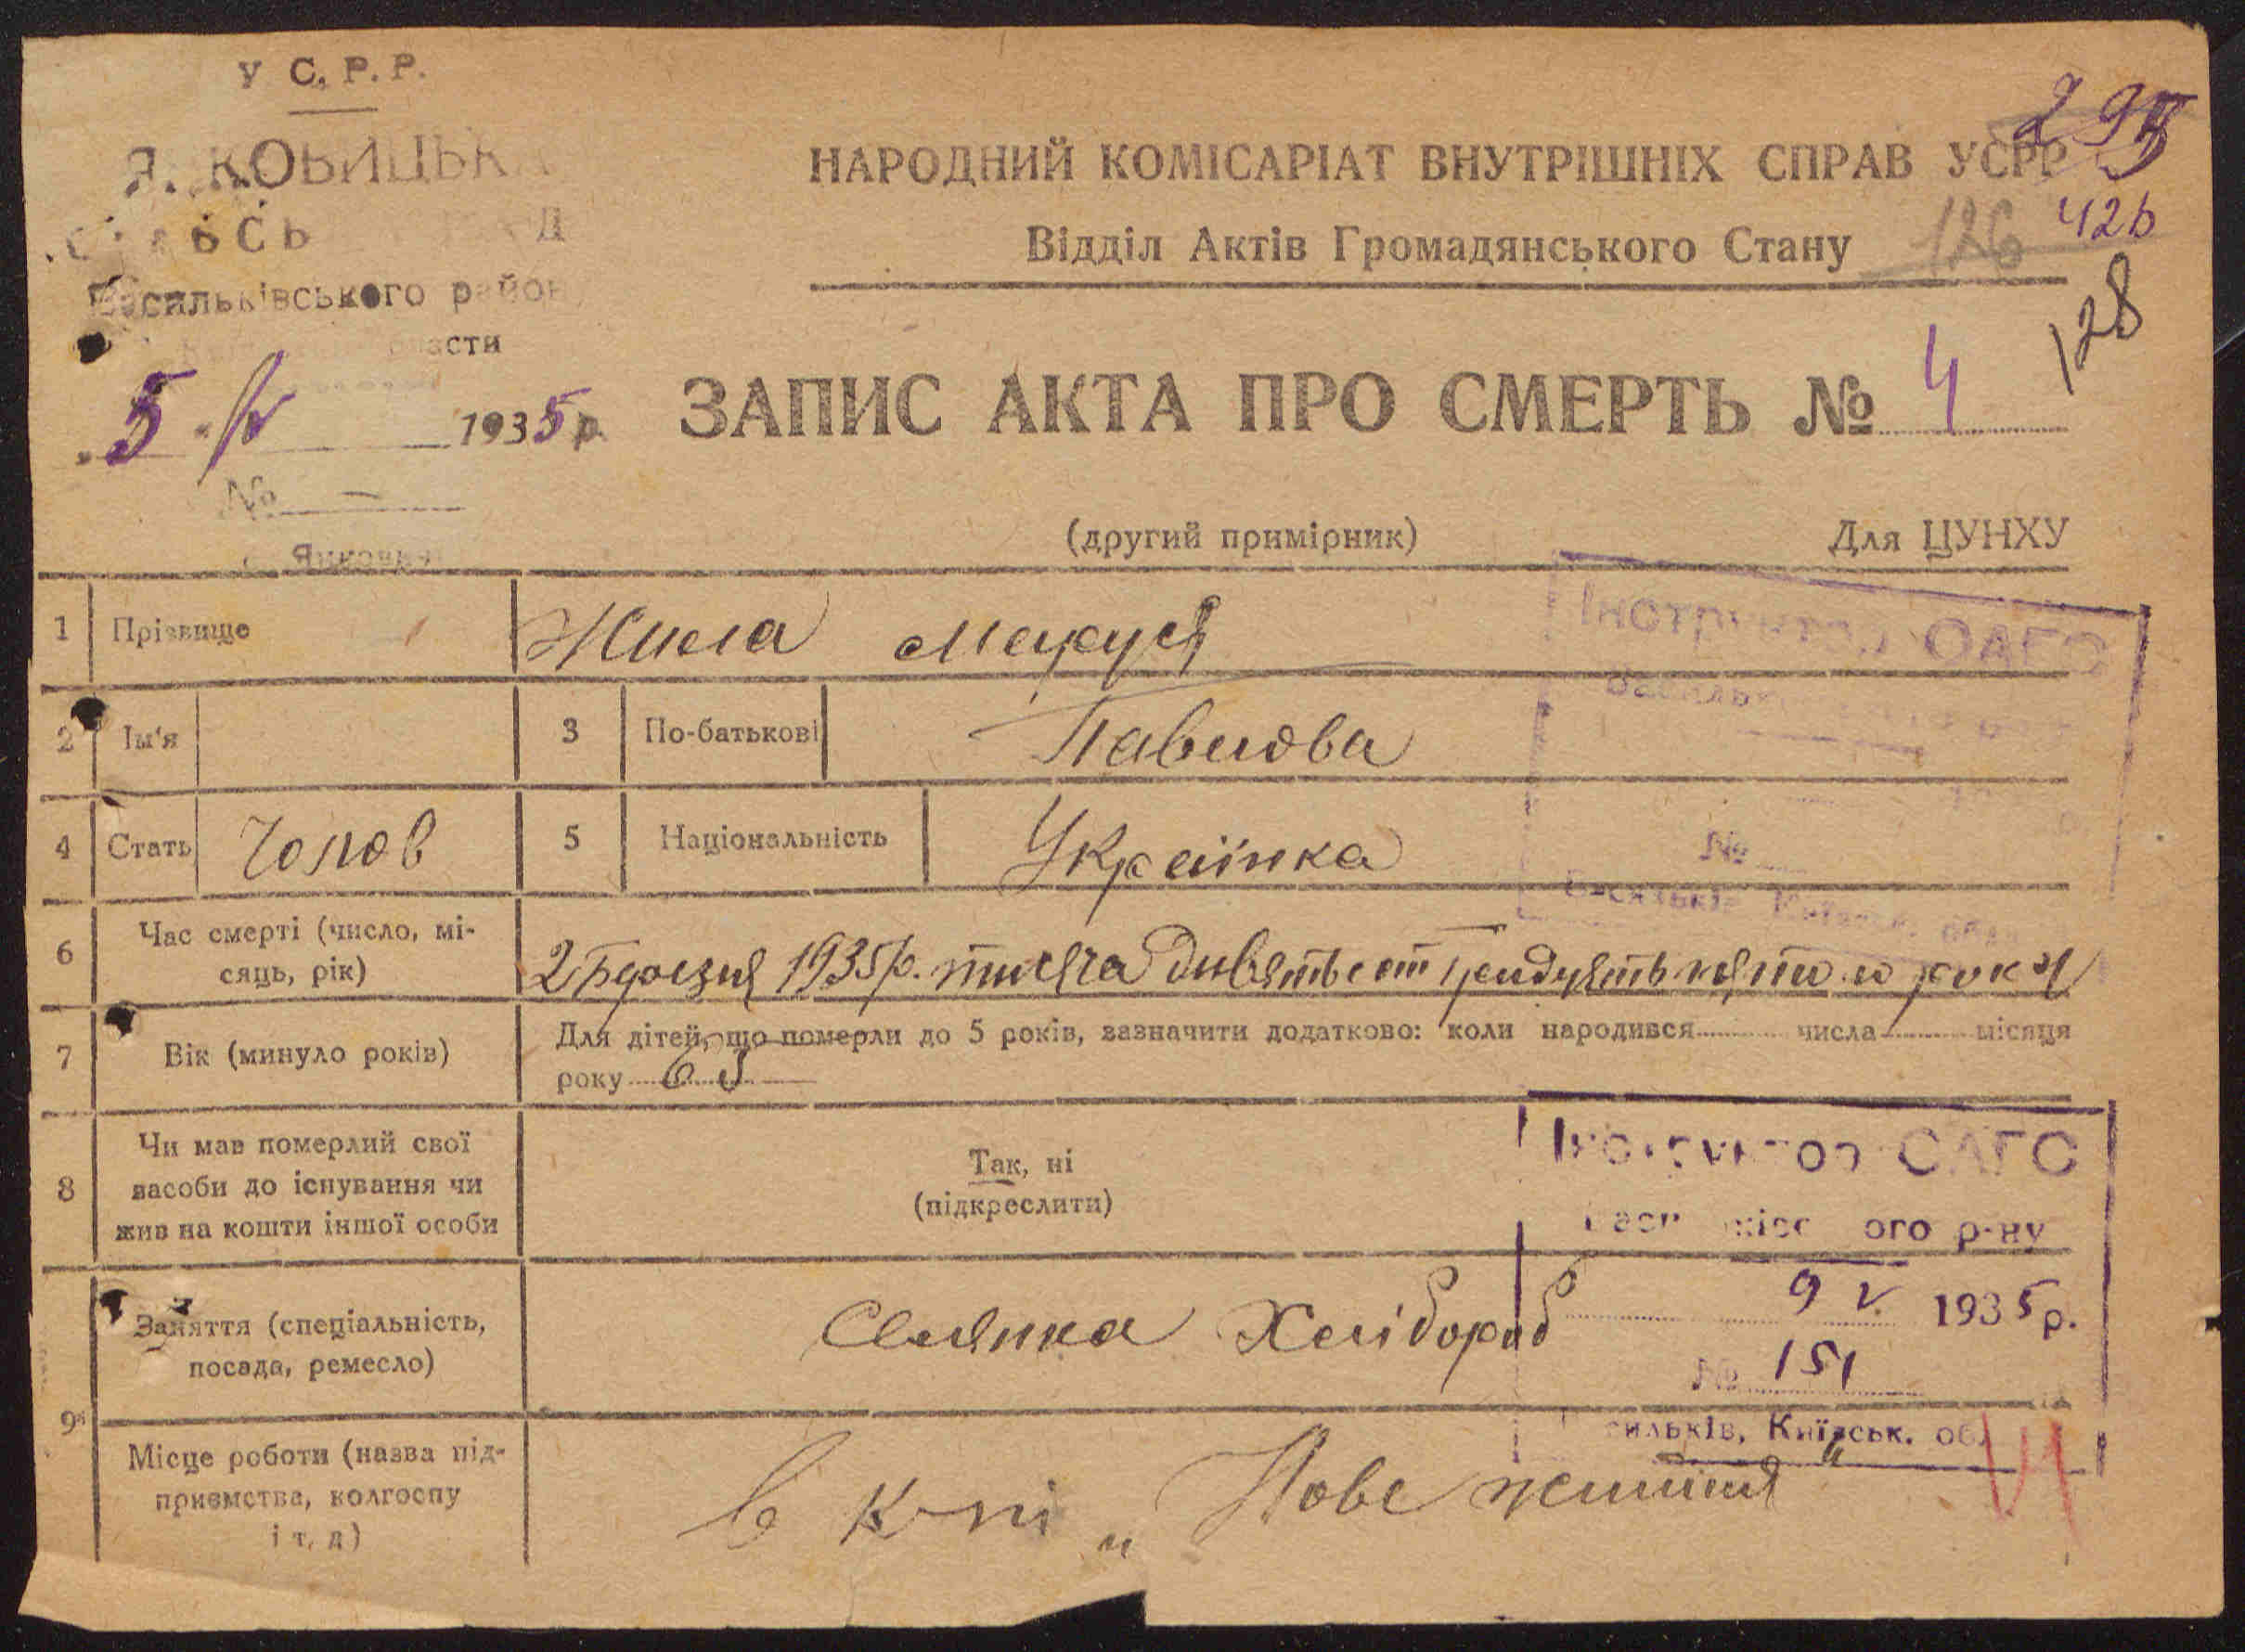 У С. Р. Р.
Васильківського району
5. V 1935 р.
№ —
НАРОДНИЙ КОМІСАРІАТ ВНУТРІШНІХ СПРАВ УСРР
Відділ Актів Громадянського Стану 126 426
128
ЗАПИС АКТА ПРО СМЕРТЬ № 4
(другий примірник) Для ЦУНХУ
1 Прізвище Жила
2 Ім'я 3 По-батькові Павлова
4 Стать Чолов 5 Національність Українка
6 Час смерті (число, мі-
сяць, рік) 1935р. тисяча
7 Вік (минуло років) Для дітей, що померли до 5 років, зазначити додатково: коли народився числа місяця
року 65
8 Чи мав померлий свої
засоби до існування чи
жив на кошти іншої особи
Так, ні
(підкреслити)
9 Заняття (спеціальність,
посада, ремесло) Селянка Хлібороб
Місце роботи (назва під-
приємства, колгоспу
і т. д) „Нове життя"
Інструктор ОАГС
№
Інструктор ОАГС
ого р-ну
9 V 1935 р.
№ 151
Київськ. обл